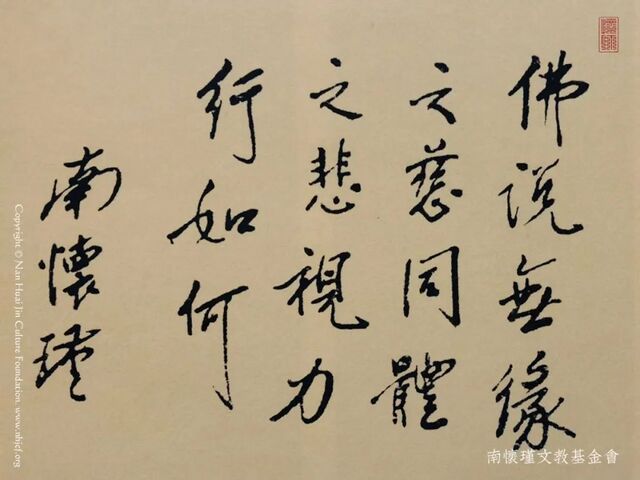 佛说無缘
之慈同體
之悲視力
行如何
南懷瑾
南懷瑾文教基金會
Copyright © Nan Huai Jin Culture Foundation. www.nhjcf.org